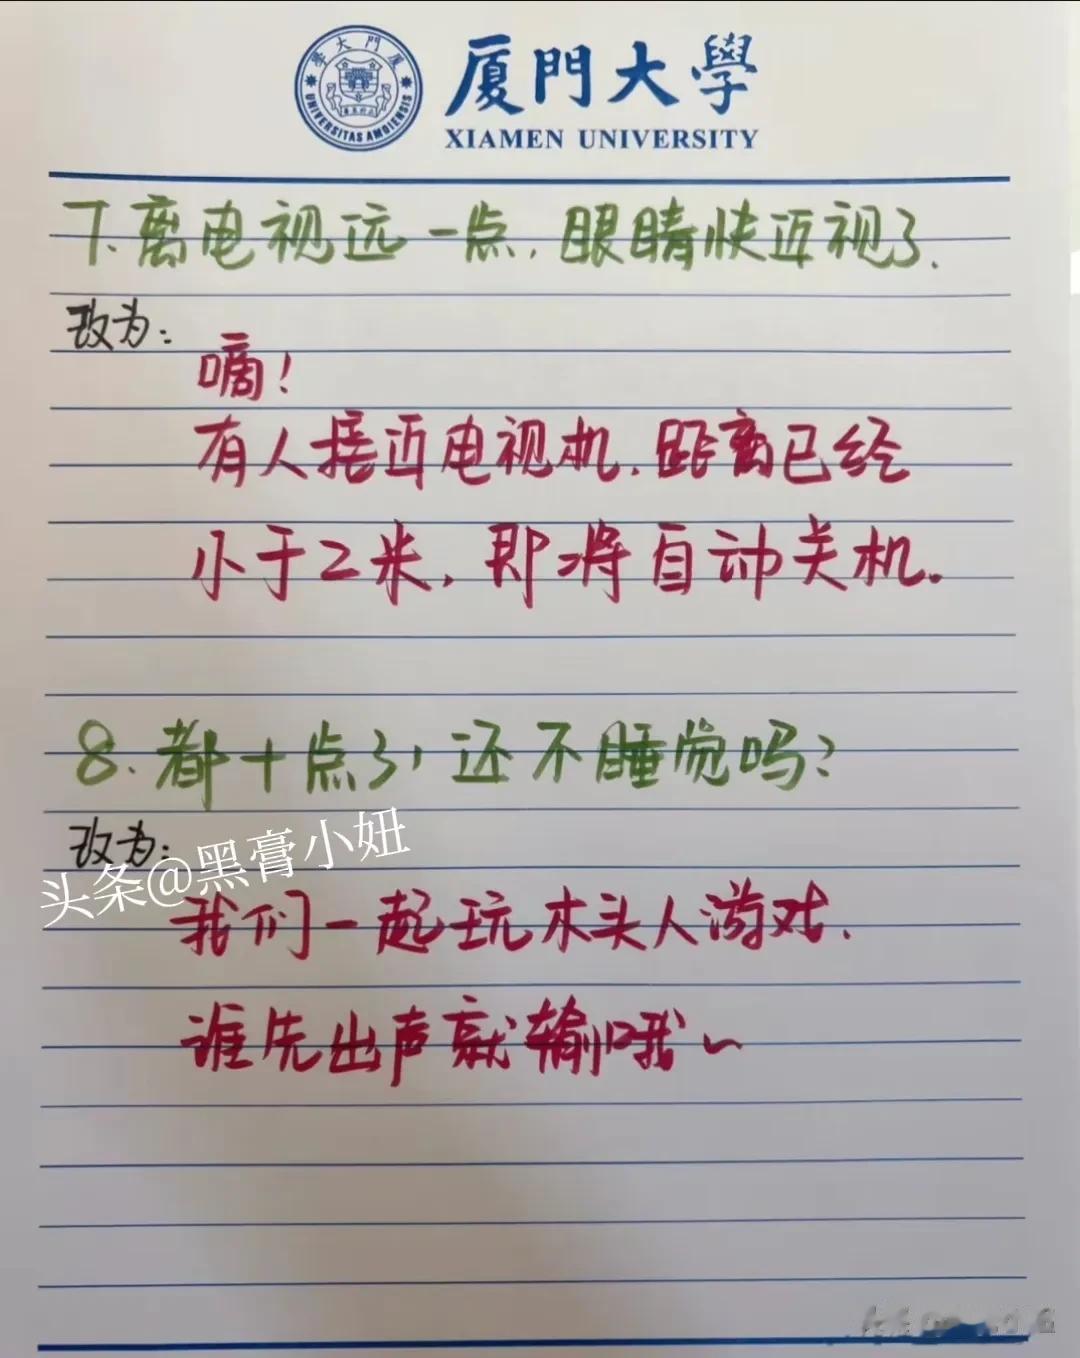 厦門大學
XIAMEN UNIVERSITY
廈門大學
UNIVERSITAS AMOIENSIS
7.离电视远一点,眼睛快近视了.
改为:
嘀!
有人接近电视机.距离已经
小于2米,即将自动关机.
8.都十点了,还不睡觉吗?
改为:
头条@黑膏小妞
我们一起玩木头人游戏.
谁先出声就输哦~